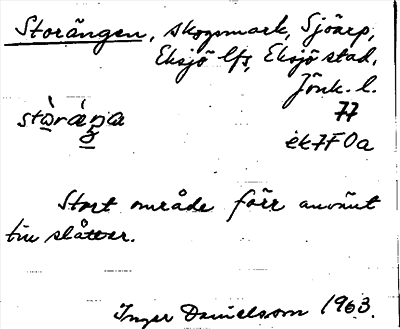 Storängen, skogsmark, Sjöarp,
Eksjö lfs, Eksjö stad,
Jönk. l.
77
ek7F0a
Stort område förr använt
till slåtter.
Inger Danielsson 1963.